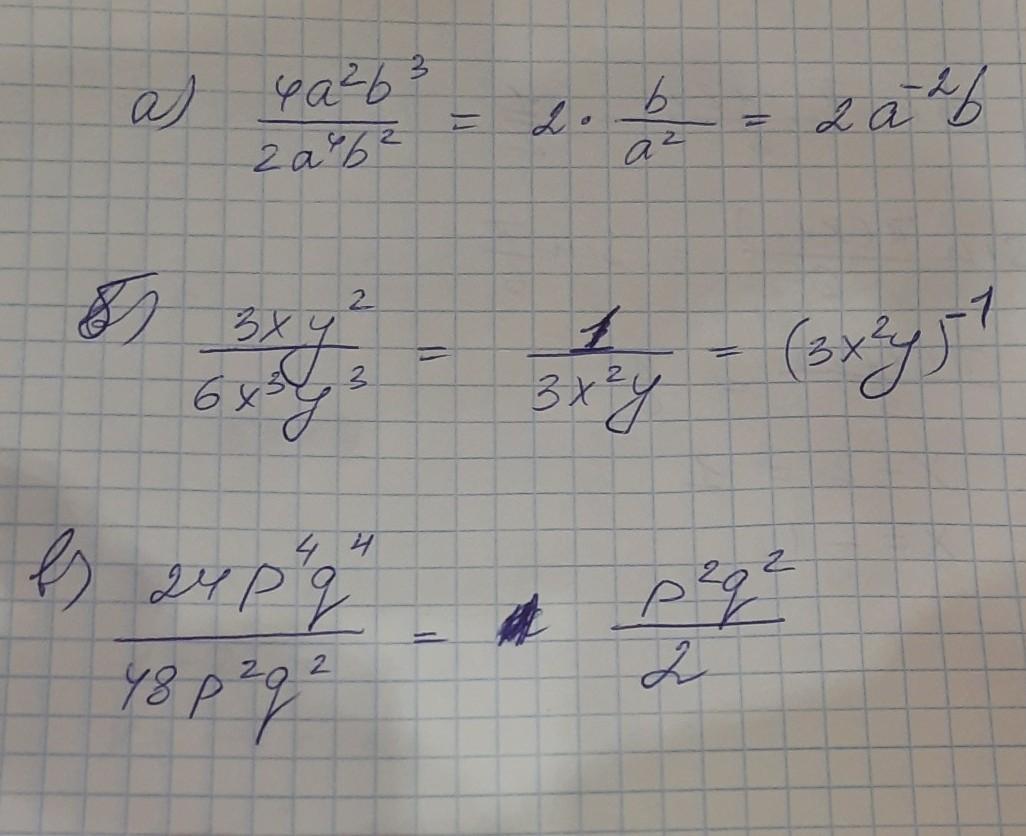 а) 4a²b³/2a⁴b² = 2 · b/a² = 2a⁻²b
б) 3xy²/6x³y³ = 1/3x²y = (3x²y)⁻¹
в) 24p⁴q⁴/48p²q² = p²q²/2